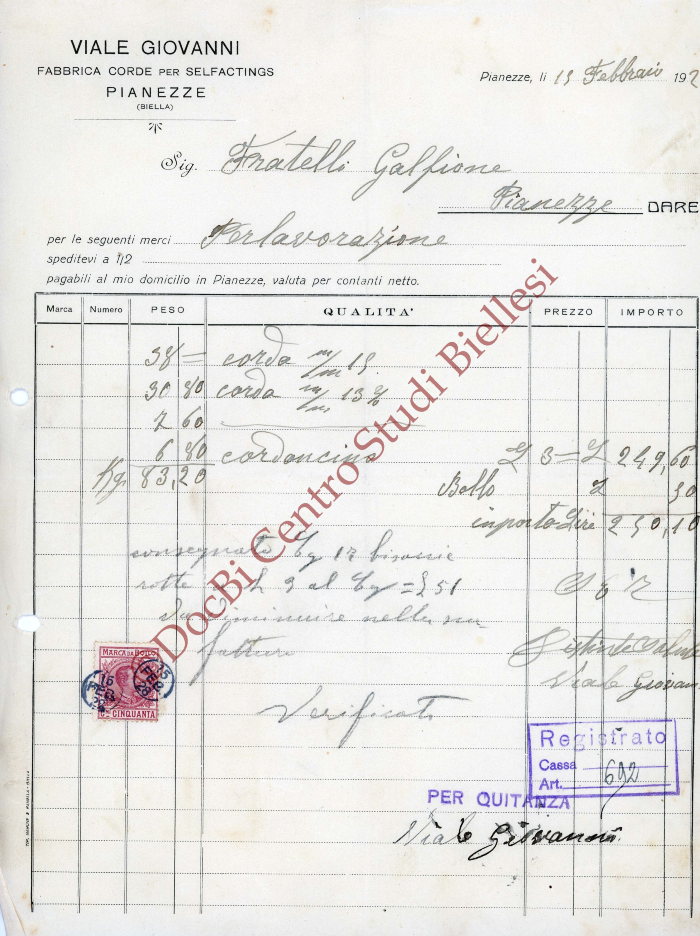 VIALE GIOVANNI
FABBRICA CORDE PER SELFACTINGS
PIANEZZE
(BIELLA)
Pianezze, li 15 Febbraio 192
Sig. Fratelli Galfione
Pianezze DARE
per le seguenti merci Per lavorazione
speditevi a 1/2
pagabili al mio domicilio in Pianezze, valuta per contanti netto.
Marca Numero PESO QUALITA' PREZZO IMPORTO
38 = corda m/m 15
30 80 corda m/m 13
7 60
6 80 cordoncino £ 3 = £ 249,60
Kg. 83,20 Bollo £ 50
importo Lire 250,10
consegnato Kg 17
rotte a £ 3 al Kg = £ 51
Da diminuire nella
fattura
Distinti saluti
Viale Giovan
MARCA DA BOLLO
15 FEB
15 FEB
CINQUANTA
Verificato
Registrato
Cassa
Art. 692
PER QUITANZA
Viale Giovanni
DocBi Centro Studi Biellesi